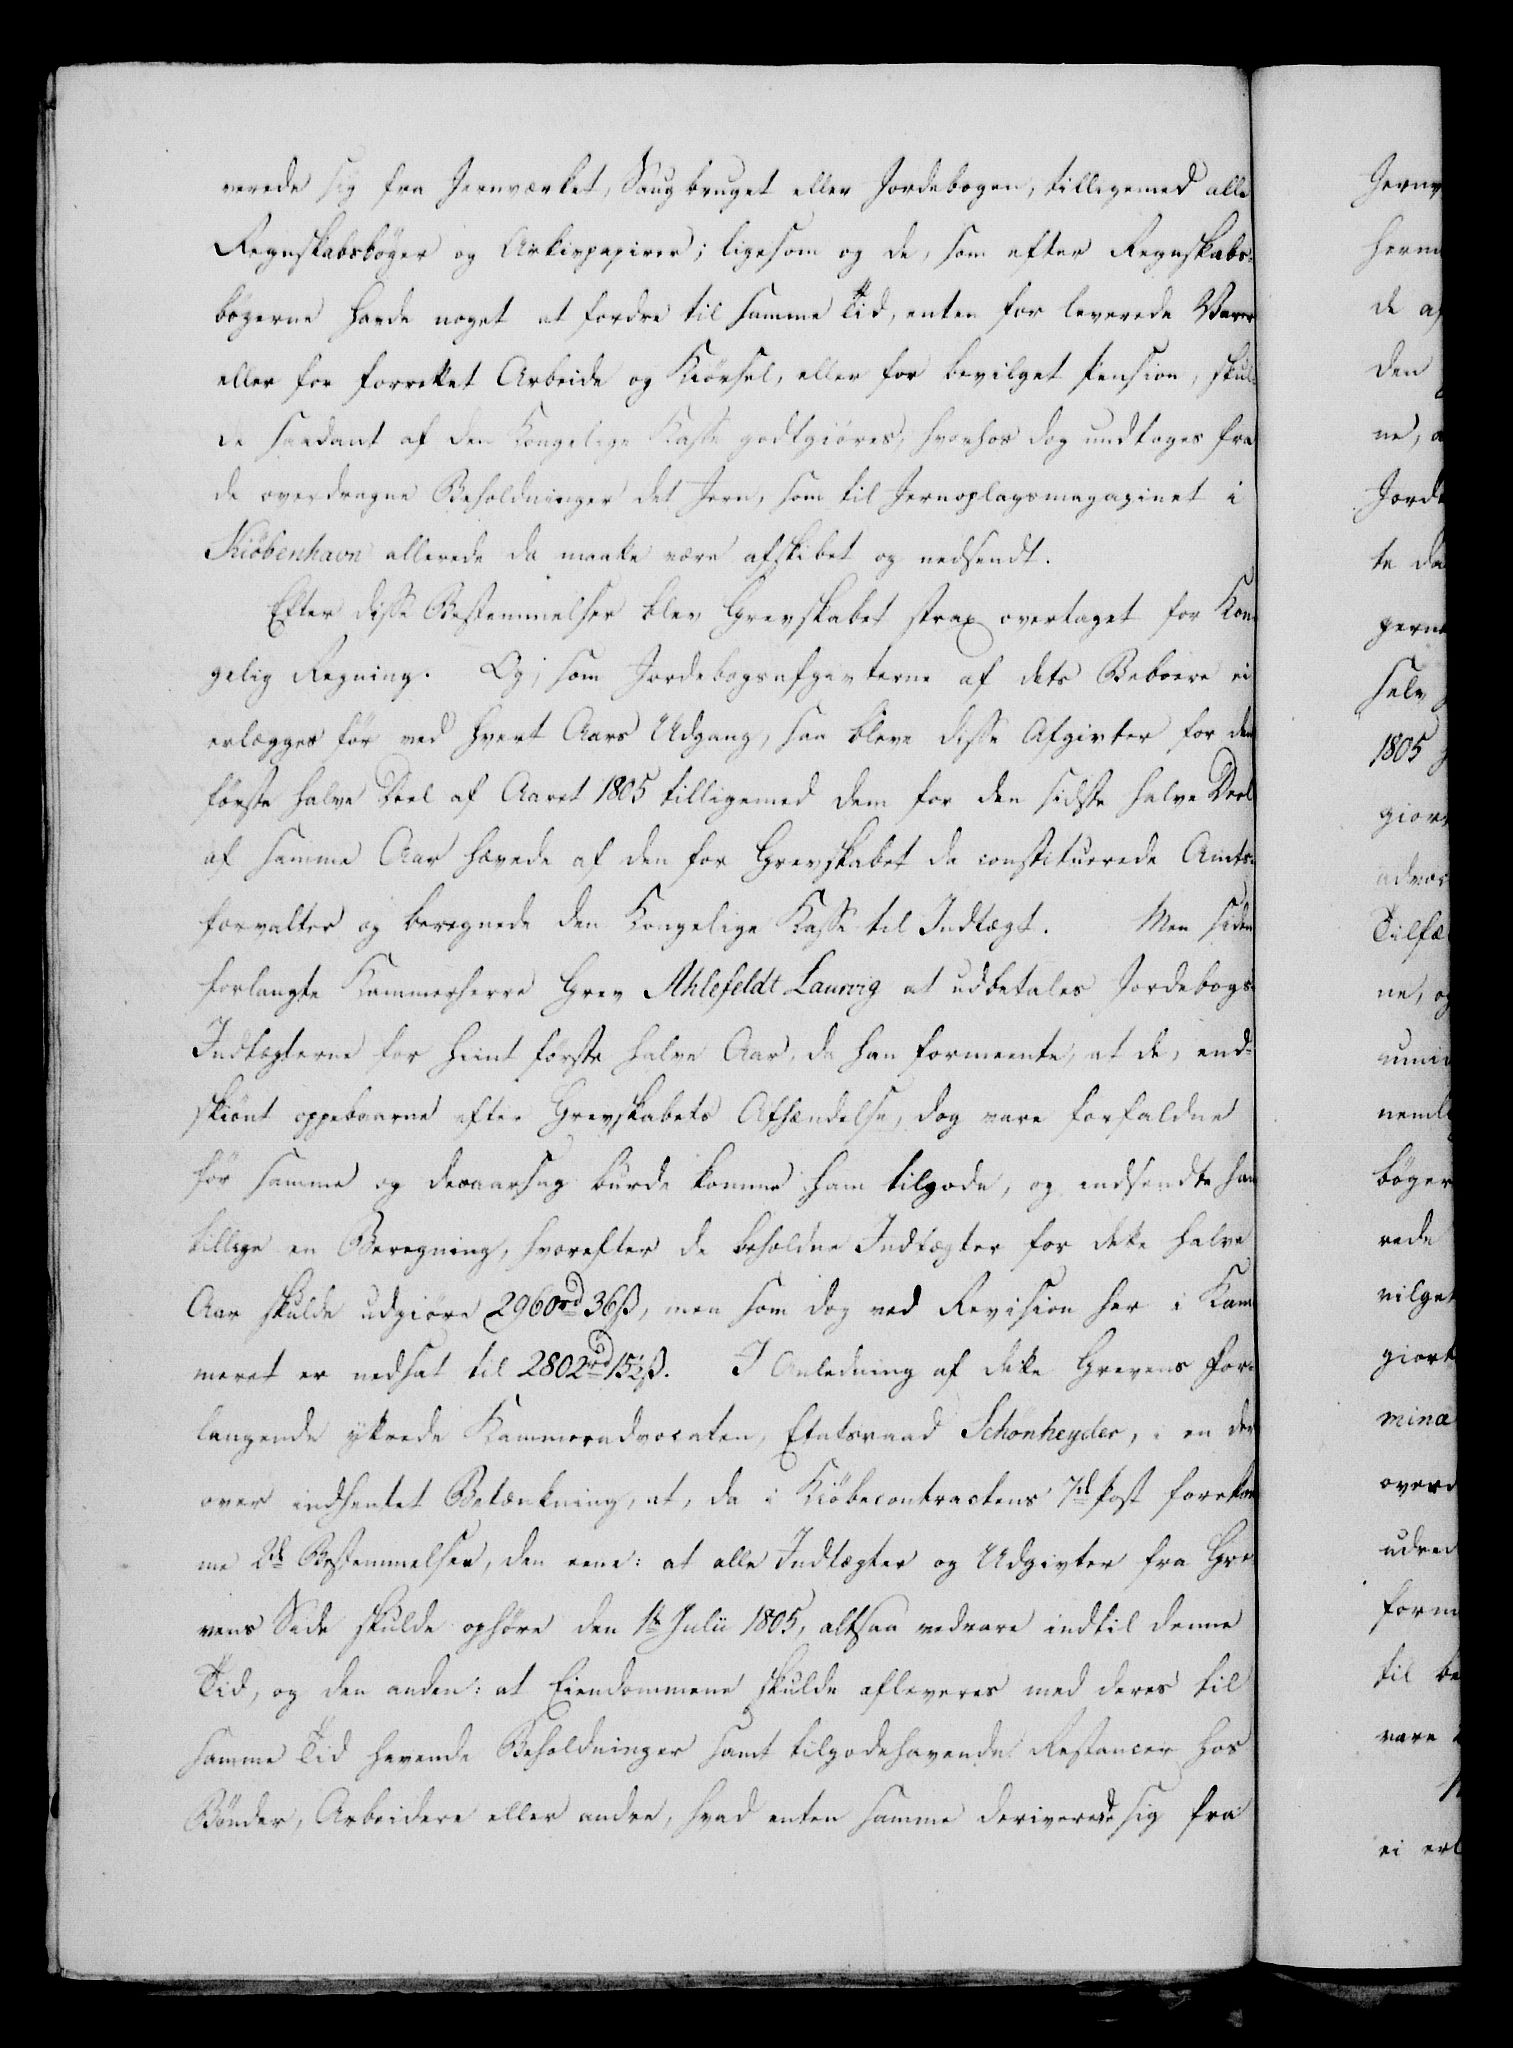 verede sig fra Jernværket, Saugbruget eller Jordebogen, tilligemed alle
Regnskabsbøger og Arkivpapirer; ligesom og de, som efter Regnskabs-
bøgerne havde noget at fordre til samme Tid, enten for leverede Varer
eller for forrettet Arbeide og Kiörsel, eller for bevilget Pension, skul-
de saadant af den Kongelige Kasse godtgiöres, hvorhos dog undtoges fra
de overdragne Beholdninger det Jern, som til Jernoplagsmagazinet i
Kiöbenhavn allerede da maatte være afskibet og nedsendt.
Efter disse Bestemmelser blev Grevskabet strax overtaget for Kon-
gelig Regning. Og, som Jordebogsafgivterne af dets Beboere ei
erlægges för ved hvert Aars Udgang, saa bleve disse Afgivter for den
förste halve Deel af Aaret 1805 tilligemed dem for den sidste halve Deel
af samme Aar hævede af den for Grevskabet da constituerede Amts-
forvalter og beregnede den Kongelige Kasse til Indtægt. Men siden
forlangte Kammerherre Grev Ahlefeldt Laurvig at udbetales Jordebogs-
Indtægterne for hiint förste halve Aar, da han formeente, at de, end-
skiönt oppebaarne efter Grevskabets Afhændelse, dog vare forfaldne
för samme og desaarsag burde komme ham tilgode, og indsendte han
tillige en Beregning, hvorefter de beholdne Indtægter for dette halve
Aar skulde udgiöre 2960 rd 36 ß, men som dog ved Revision her i Kam-
meret er nedsat til 2802 rd 15½ ß. I Anledning af dette Grevens For-
langende yttrede Kammeradvocaten, Etatsraad Schönheyder, i en der-
over indhentet Betænkning, at, da i Kiöbecontractens 7de Post forekom-
me 2de Bestemmelser, den eene: at alle Indtægter og Udgivter fra Gre-
vens Side skulde ophöre den 1te Julii 1805, altsaa vedvare indtil denne
Tid, og den anden: at Eiendommene skulde afleveres med deres til
samme Tid havende Beholdninger samt tilgodehavende Restancer hos
Bönder, Arbeidere eller andre, hvad enten samme deriverede sig fra